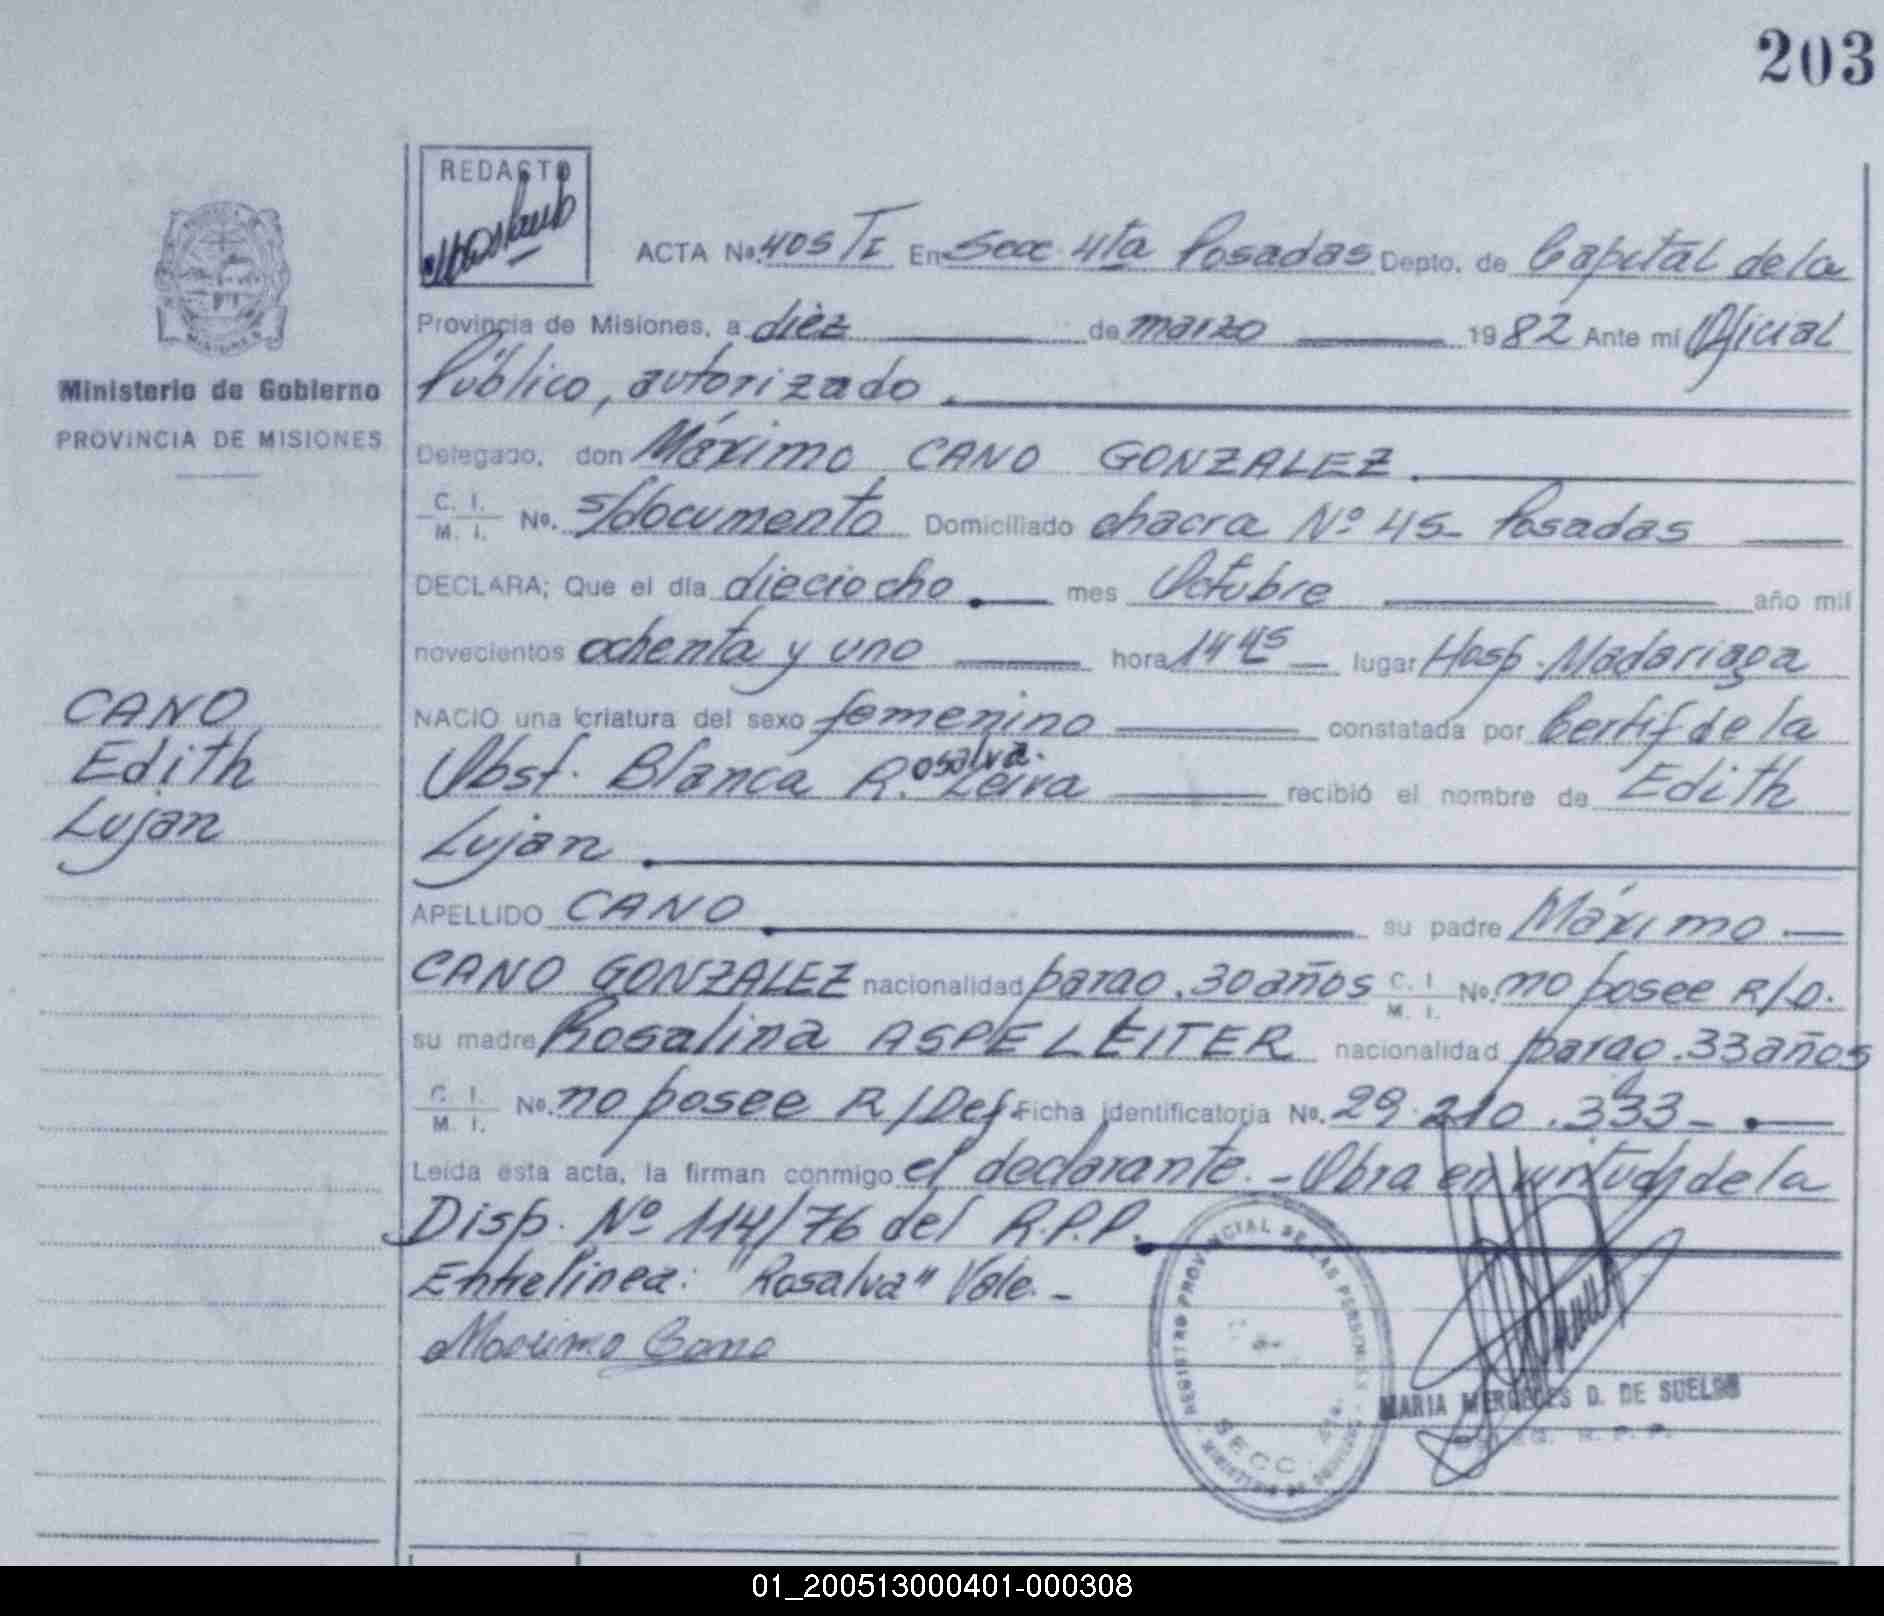 203
REDACTO
ACTA No. 405 TI En Secc. 4ta Posadas Depto. de Capital de la
Provincia de Misiones, a diez de marzo 1982 Ante mí Oficial
Ministerio de Gobierno
PROVINCIA DE MISIONES
MISIONES
Público, autorizado.
Delegado, don Máximo CANO GONZALEZ.
C. I. M. I. No. s/documento Domiciliado chacra Nº 45- Posadas
DECLARA; Que el día dieciocho. mes Octubre año mil
novecientos ochenta y uno hora 14 45 lugar Hosp. Madariaga
CANO
Edith
Lujan
NACIO una criatura del sexo femenino constatada por Certif de la
Obst. Blanca R. osalva. Leiva recibió el nombre de Edith
Lujan.
APELLIDO CANO. su padre Máximo
CANO GONZALEZ nacionalidad parag. 30 años C. I. M. I. No. no posee R/D.
su madre Rosalina ASPELEITER nacionalidad parag. 33 años
C. I. M. I. No. no posee R/Def. Ficha identificatoria No. 29.210.333-.
Leída esta acta, la firman conmigo el declarante.- Obra en virtud de la
Disp. Nº 114/76 del R.P.P.
Entrelinea: "Rosalva" Vale.-
Maximo Cano
REGISTRO PROVINCIAL DE LAS PERSONAS
SECC. 4ta.
MARIA MERCEDES D. DE SUELDO
R. P. P.
01_200513000401-000308